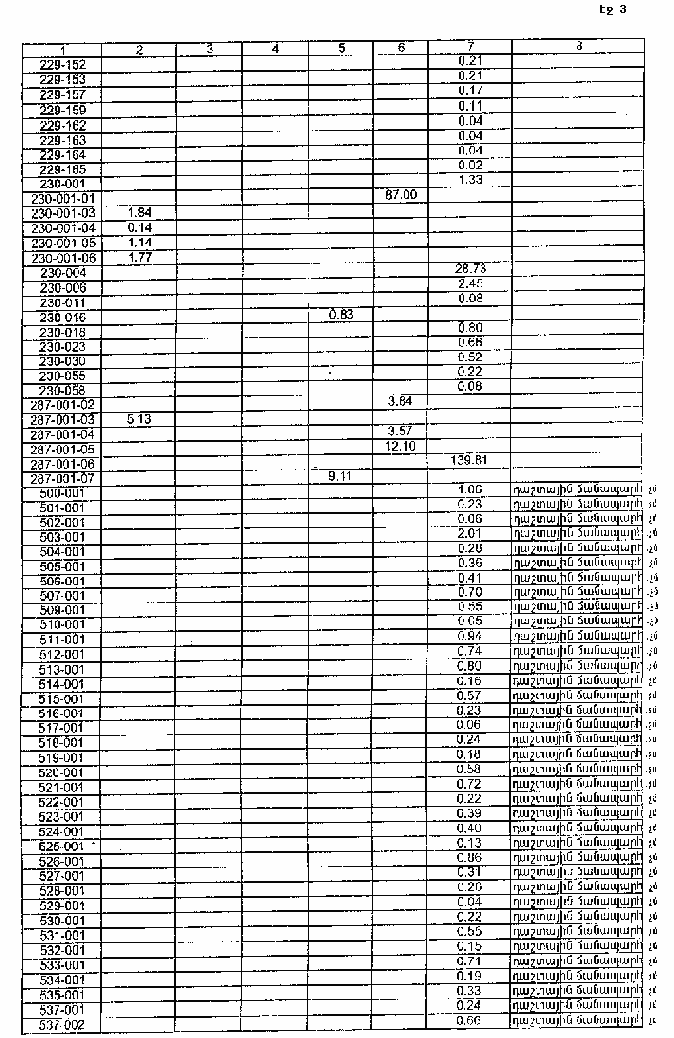 էջ 3
1 2 3 4 5 6 7 8
229-152 0.21
229-153 0.21
229-157 0.17
229-159 0.11
229-162 0.04
229-163 0.04
229-164 0.04
229-165 0.02
230-001 1.33
230-001-01 87.00
230-001-03 1.84
230-001-04 0.14
230-001-05 1.14
230-001-06 1.77
230-004 28.73
230-006 2.45
230-011 0.08
230-016 0.83
230-018 0.80
230-023 0.68
230-030 0.52
230-055 0.22
230-058 0.08
287-001-02 3.84
287-001-03 5.13
287-001-04 3.57
287-001-05 12.10
287-001-06 139.81
287-001-07 9.11
500-001 1.06 դաշտային ճանապարհ
501-001 0.23 դաշտային ճանապարհ
502-001 0.06 դաշտային ճանապարհ
503-001 2.01 դաշտային ճանապարհ
504-001 0.28 դաշտային ճանապարհ
505-001 0.36 դաշտային ճանապարհ
506-001 0.41 դաշտային ճանապարհ
507-001 0.70 դաշտային ճանապարհ
509-001 0.55 դաշտային ճանապարհ
510-001 0.05 դաշտային ճանապարհ
511-001 0.94 դաշտային ճանապարհ
512-001 0.74 դաշտային ճանապարհ
513-001 0.80 դաշտային ճանապարհ
514-001 0.16 դաշտային ճանապարհ
515-001 0.57 դաշտային ճանապարհ
516-001 0.23 դաշտային ճանապարհ
517-001 0.06 դաշտային ճանապարհ
518-001 0.24 դաշտային ճանապարհ
519-001 0.18 դաշտային ճանապարհ
520-001 0.58 դաշտային ճանապարհ
521-001 0.72 դաշտային ճանապարհ
522-001 0.22 դաշտային ճանապարհ
523-001 0.39 դաշտային ճանապարհ
524-001 0.40 դաշտային ճանապարհ
525-001 0.13 դաշտային ճանապարհ
526-001 0.86 դաշտային ճանապարհ
527-001 0.31 դաշտային ճանապարհ
528-001 0.20 դաշտային ճանապարհ
529-001 0.04 դաշտային ճանապարհ
530-001 0.22 դաշտային ճանապարհ
531-001 0.55 դաշտային ճանապարհ
532-001 0.15 դաշտային ճանապարհ
533-001 0.71 դաշտային ճանապարհ
534-001 0.19 դաշտային ճանապարհ
535-001 0.33 դաշտային ճանապարհ
537-001 0.24 դաշտային ճանապարհ
537-002 0.66 դաշտային ճանապարհ